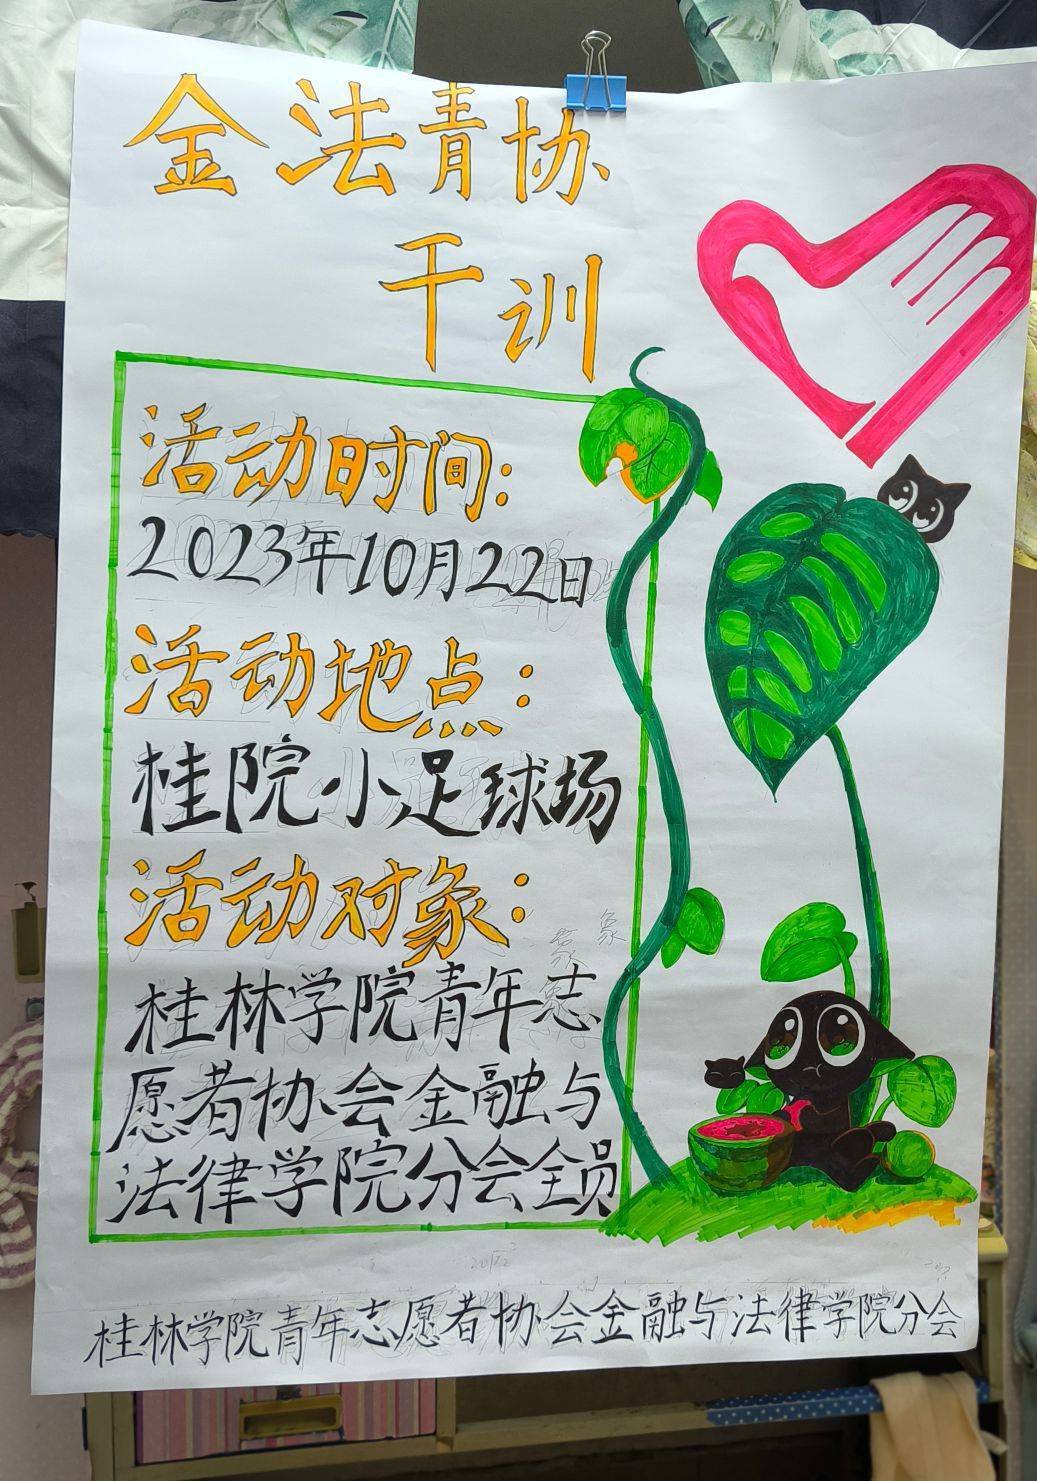 金法青协
干训
活动时间:
2023年10月22日
活动地点:
桂院小足球场
活动对象:
桂林学院青年志
愿者协会金融与
法律学院分会全员
桂林学院青年志愿者协会金融与法律学院分会